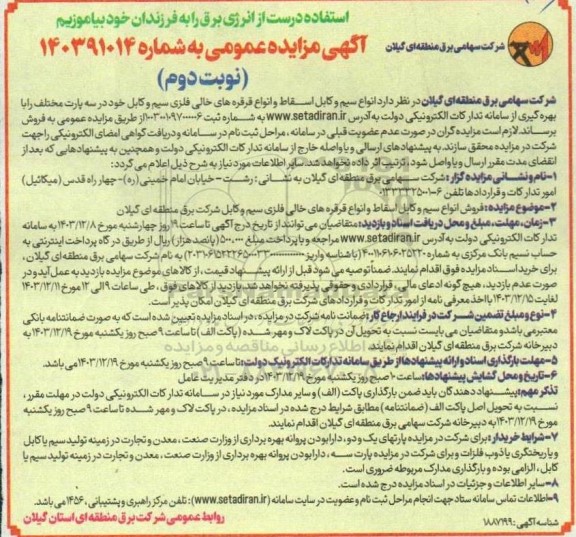 استفاده درست از انرژی برق را به فرزندان خود بیاموزیم
آگهی مزایده عمومی به شماره ۱۴۰۳۹۱۰۱۴
(نوبت دوم)
شرکت سهامی برق منطقه ای گیلان
شرکت سهامی برق منطقه ای گیلان در نظر دارد انواع سیم و کابل اسقاط و انواع قرقره های خالی فلزی سیم و کابل خود در سه پارت مختلف را با
بهره گیری از سامانه تدارکات الکترونیکی دولت به آدرس www.setadiran.ir به شماره ثبت از طریق مزایده عمومی به فروش
برساند. لازم است مزایده گران در صورت عدم عضویت قبلی در سامانه، مراحل ثبت نام در سامانه و دریافت گواهی امضای الکترونیکی را جهت
شرکت در مزایده محقق سازند. به پیشنهادهای ارسالی و یا واصله خارج از سامانه تدارکات الکترونیکی دولت و همچنین به پیشنهادهایی که بعد از
انقضای مدت مقرر ارسال و یا وصول شود، ترتیب اثر داده نخواهد شد. سایر اطلاعات مورد نیاز به شرح ذیل اعلام می گردد:
۱- نام و نشانی مزایده گزار: شرکت سهامی برق منطقه ای گیلان به نشانی: رشت - خیابان امام خمینی (ره)- چهار راه قدس (میکائیل)
امور تدارکات و قراردادها تلفن
۲- موضوع مزایده: فروش انواع سیم و کابل اسقاط و انواع قرقره های خالی فلزی سیم و کابل شرکت برق منطقه ای گیلان
۳- زمان، مهلت، مبلغ و محل دریافت اسناد و بازدید: متقاضیان می توانند از تاریخ درج آگهی تا ساعت ۱۹ روز چهارشنبه مورخ ۱۴۰۳/۱۲/۸ به سامانه
تدارکات الکترونیکی دولت به آدرس www.setadiran.ir مراجعه و با پرداخت مبلغ ۵۰۰,۰۰۰ (پانصد هزار) ریال از طریق در گاه پرداخت اینترنتی به
حساب نسیم بانک مرکزی به شماره به نام شرکت سهامی برق منطقه ای گیلان،
برای خرید اسناد مزایده فوق اقدام نمایند. ضمناً توصیه می شود قبل از ارائه پیشنهاد قیمت، از کالاهای موضوع مزایده بازدید به عمل آید و در
صورت عدم بازدید، هیچ گونه ادعای مالی، قراردادی و حقوقی پذیرفته نخواهد شد. بازدید از کالاهای فوق، طی ساعات ۹ الی ۱۲ مورخ ۱۴۰۳/۱۲/۱۱
لغایت ۱۴۰۳/۱۲/۱۵ با اخذ معرفی نامه از امور تدارکات و قراردادهای شرکت برق منطقه ای گیلان امکان پذیر است.
۴- نوع و مبلغ تضمین شرکت در فرایند ارجاع کار: ضمانت نامه شرکت در مزایده، در اسناد مزایده تعیین شده است که به صورت ضمانتنامه بانکی
معتبر می باشد و متقاضیان می بایست نسبت به تحویل آن در پاکت لاک و مهر شده (پاکت الف) تا ساعت ۹ صبح روز یکشنبه مورخ ۱۴۰۳/۱۲/۱۹ به
دبیرخانه شرکت برق منطقه ای گیلان اقدام نمایند.
۵- مهلت بارگذاری اسناد و ارائه پیشنهادها از طریق سامانه تدارکات الکترونیک دولت: تا ساعت ۹ صبح روز یکشنبه مورخ ۱۴۰۳/۱۲/۱۹ می باشد.
۶- تاریخ و محل گشایش پیشنهادها: ساعت ۱۰ صبح روز یکشنبه مورخ ۱۴۰۳/۱۲/۱۹ در دفتر مدیریت عامل
تذکر مهم: پیشنهاد دهندگان باید ضمن بارگذاری پاکت (الف) و سایر مدارک مورد نیاز در سامانه تدارکات الکترونیکی دولت در مهلت مقرر،
نسبت به تحویل اصل پاکت الف (ضمانتنامه) مطابق شرایط درج شده در اسناد مزایده، در پاکت لاک و مهر شده تا ساعت ۹ صبح روز یکشنبه
مورخ ۱۴۰۳/۱۲/۱۹ به دبیرخانه شرکت سهامی برق منطقه ای گیلان اقدام نمایند.
۷- شرایط خریدار: برای شرکت در مزایده پارتهای یک و دو، دارا بودن پروانه بهره برداری از وزارت صنعت، معدن و تجارت در زمینه تولید سیم یا کابل
و یا ریختگری یا ذوب فلزات و برای شرکت در مزایده پارت سه، دارا بودن پروانه بهره برداری از وزارت صنعت، معدن و تجارت در زمینه تولید سیم یا
کابل، الزامی بوده و بارگذاری مدارک مربوطه ضروری است.
۸- سایر اطلاعات و جزئیات در اسناد مزایده درج شده است.
۹- اطلاعات تماس سامانه ستاد جهت انجام مراحل ثبت نام و عضویت در سایت سامانه (www.setadiran.ir): تلفن مرکز راهبری و پشتیبانی، ۱۴۵۶ می باشد.
روابط عمومی شرکت برق منطقه ای استان گیلان
شناسه آگهی: ۱۸۸۷۱۹۹